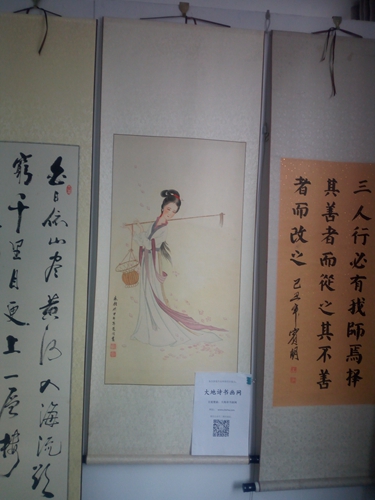 白日依山尽黄河入海流欲
窮千里目更上一层楼
大地诗书画网
三人行必有我師焉择
其善者而從之其不善
者而改之
己丑年